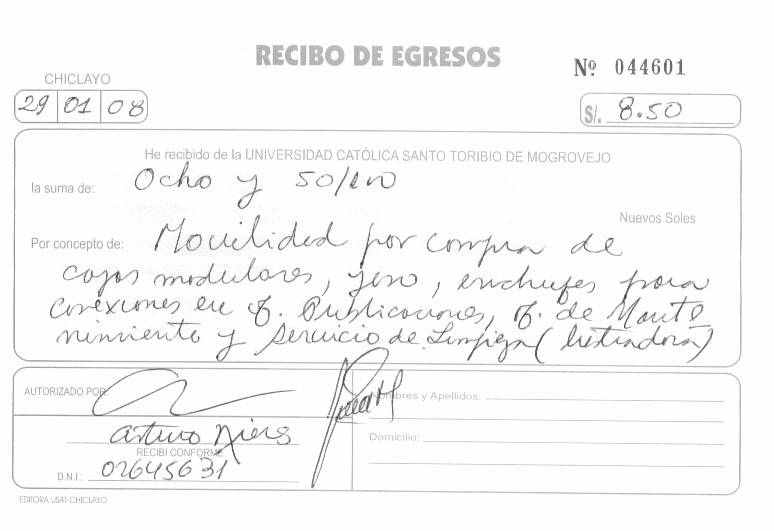 RECIBO DE EGRESOS
Nº 044601
CHICLAYO
29 01 08
S/. 8.50
He recibido de la UNIVERSIDAD CATÓLICA SANTO TORIBIO DE MOGROVEJO
la suma de: Ocho y 50/100
Nuevos Soles
Por concepto de: Movilidad por compra de
cajas modulares, yeso, enchufes para
conexiones en of. Publicaciones, of. de Mante
nimiento y Servicio de Limpieza (lustradora)
AUTORIZADO POR:
Nombres y Apellidos:
Arturo
RECIBI CONFORME
Domicilio:
D.N.I.: 02645631
EDITORA USAT-CHICLAYO